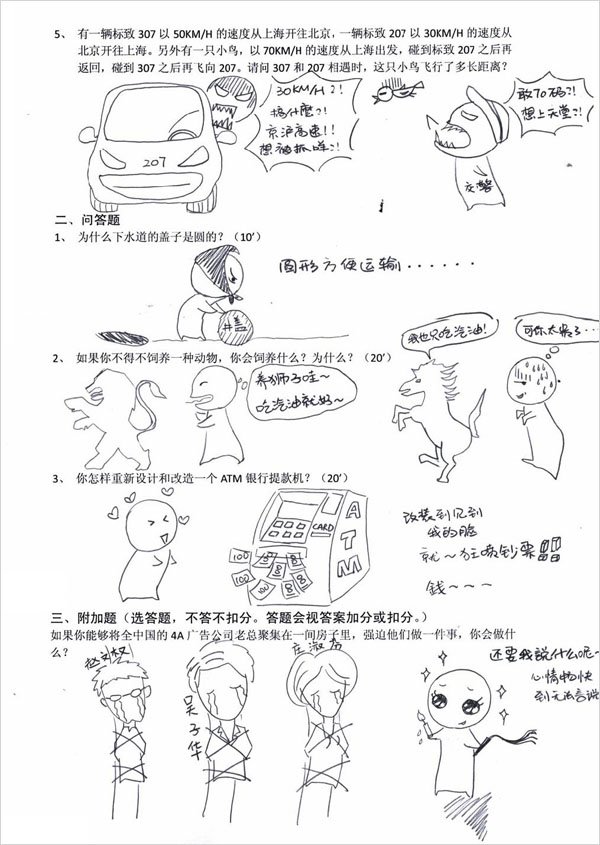 5、 有一辆标致 307 以 50KM/H 的速度从上海开往北京，一辆标致 207 以 30KM/H 的速度从
北京开往上海。另外有一只小鸟，以 70KM/H 的速度从上海出发，碰到标致 207 之后再
返回，碰到 307 之后再飞向 207。请问 307 和 207 相遇时，这只小鸟飞行了多长距离？
30KM/H？！
搞什麼？！
京沪高速！！
想被抓咩？！
敢70码？！
想上天堂？！
207
交警
二、问答题
1、 为什么下水道的盖子是圆的？（10’）
圆形方便运输······
井盖
2、 如果你不得不饲养一种动物，你会饲养什么？为什么？（20’）
养狮子哇~
吃汽油就好~
我也只吃汽油！
可你太累了…
3、 你怎样重新设计和改造一个 ATM 银行提款机？（20’）
CARD
ATM
100
100
100
改装到见到
我的脸
就~狂喷钞票!!!
錢~~~
三、附加题（选答题，不答不扣分。答题会视答案加分或扣分。）
如果你能够将全中国的 4A 广告公司老总聚集在一间房子里，强迫他们做一件事，你会做什
么？
吴子华
庄淑芬
还要我説什么呢~
心情畅快
到无法言说